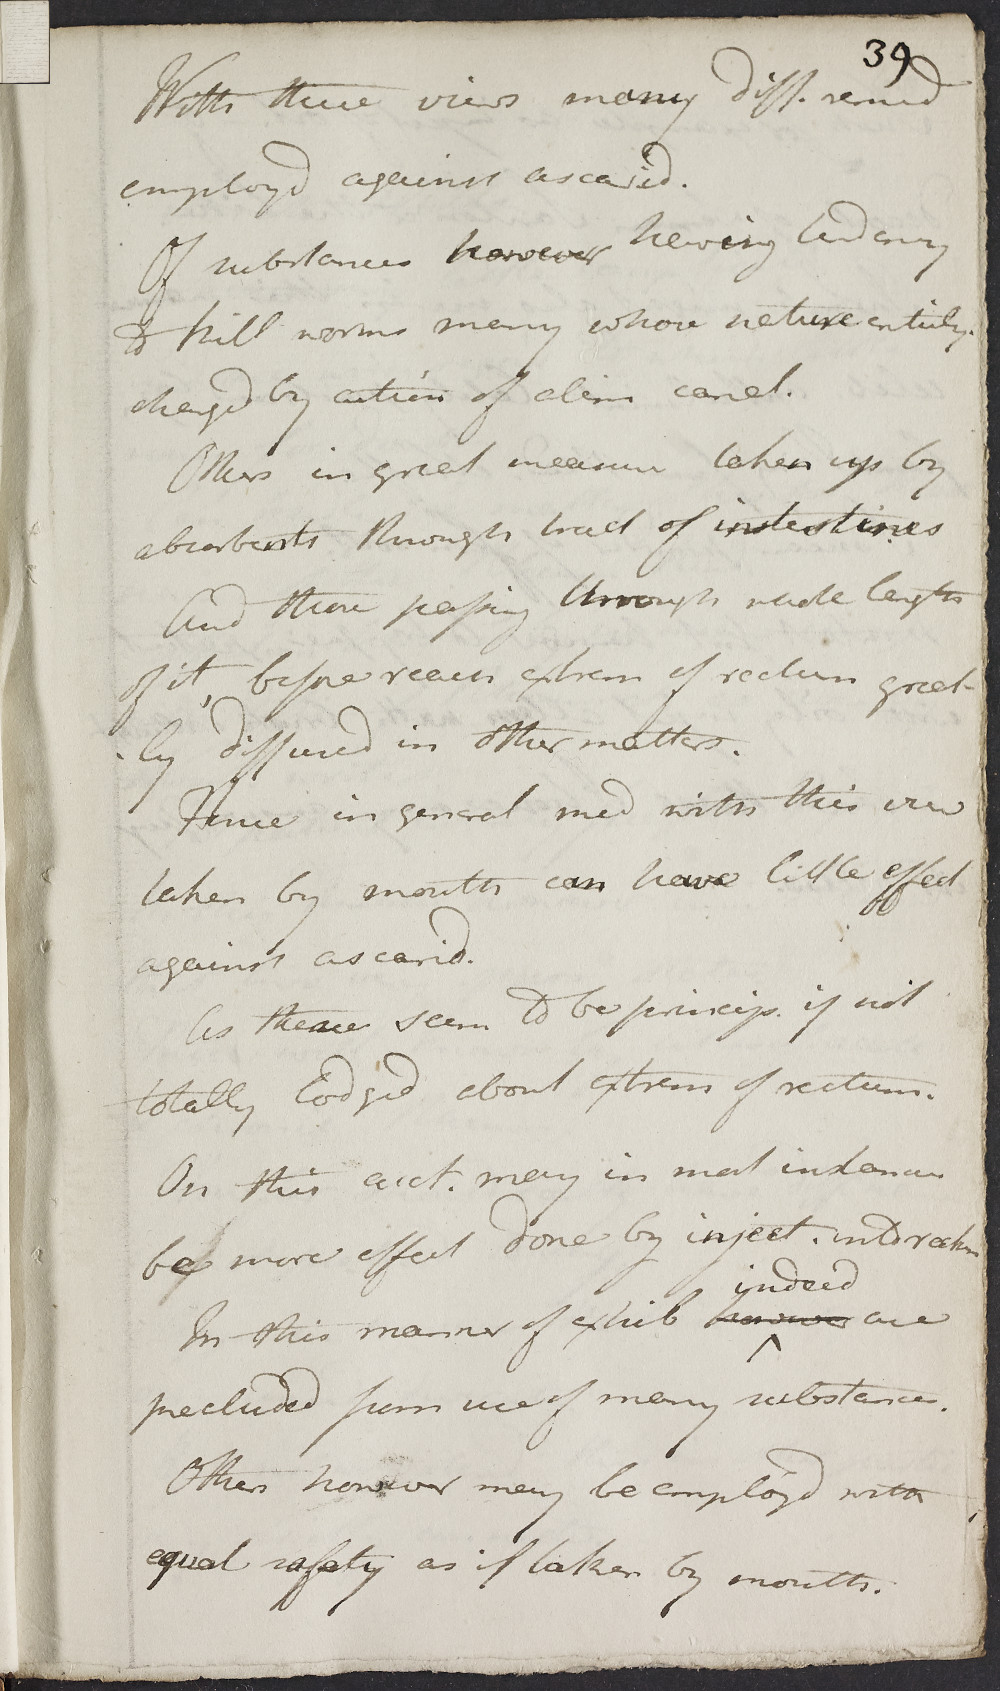 39
With these views many diff. remed
employd against ascarid.
Of substances however having tendency
to kill worms many whose nature entirely
changd by action of alim canal.
Others in great measure taken up by
absorbents through tract of intestines
And those passing through whole length
of it, before reach extrem of rectum great-
-ly diffused in other matters.
Hence in general med with this view
taken by mouth can have little effect
against ascarid.
As these seem to be princip. if not
totally lodged about extrem of rectum.
On this acct. may in most instances
be more effect done by inject. into rectum
indeed
In this manner of exhib however are
precluded from use of many substances.
Others however may be employd with
equal safety as if taken by mouth.